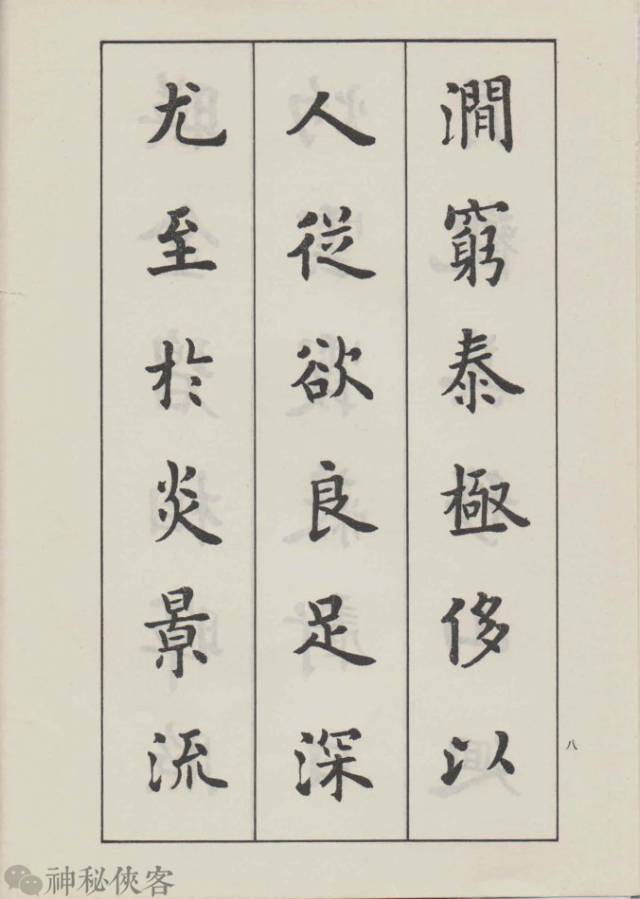 澗窮泰極侈以
人從欲良足深
尤至於炎景流
八
神秘俠客